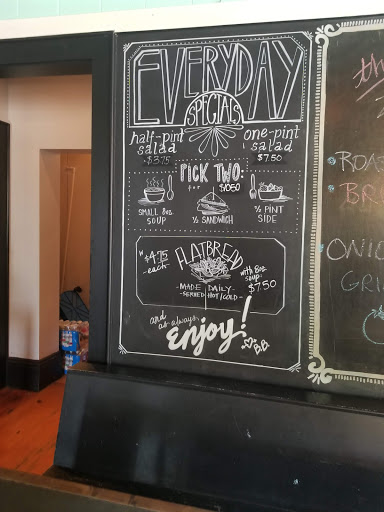 EVERYDAY
SPECIALS
half-pint salad
$3.75
one-pint salad
$7.50
PICK TWO:
for $10.50
SMALL 8oz. SOUP
½ SANDWICH
½ PINT SIDE
FLATBREAD
$4.75
-each-
with 8oz. soup:
$7.50
-MADE DAILY-
-SERVED HOT/COLD-
and as always,
enjoy!
B.B.
the
ROAS
BR
ONIO
GRI